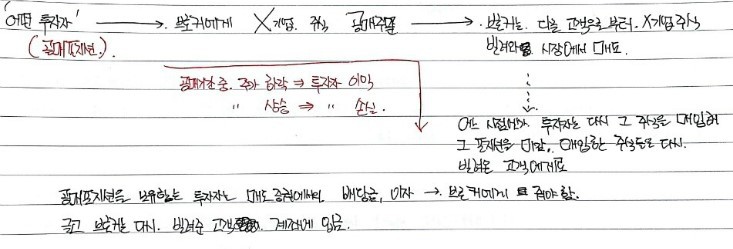 어떤 투자자 → 브로커에게 X기업 주식 공매주문 → 브로커는 다른 고객으로부터 X기업 주식
(공매포지션.) 빌려와 시장에서 매도.
공매기간 중. 주가 하락 ⇒ 투자자 이익
〃 상승 ⇒ 〃 손실.
어느 시점에서 투자자는 다시 그 주식을 매입하여
그 포지션을 마감, 매입한 주식들은 다시.
빌려온 고객에게로
공매포지션을 보유하는 투자자는 매도 증권에서의 배당금, 이자 → 브로커에게 줘야함.
글고 브로커는 다시. 빌려준 고객 계좌에 입금.